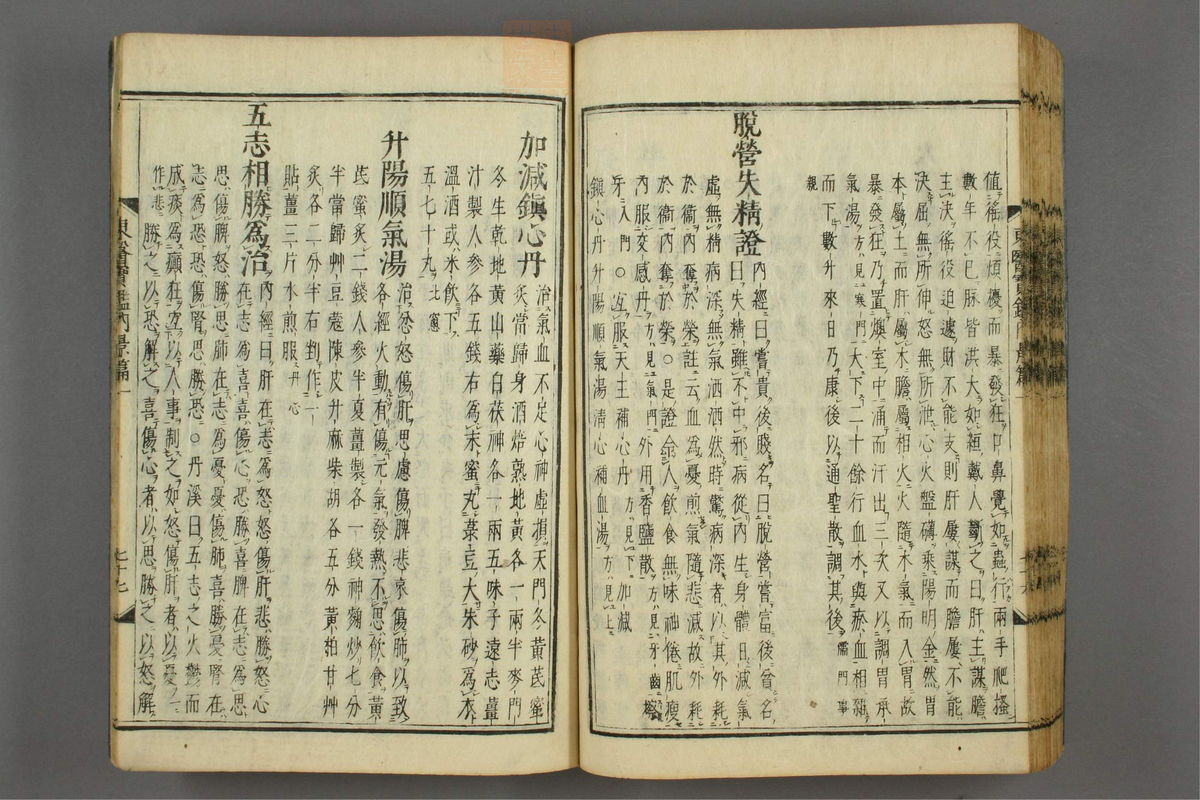 値徭役煩擾而暴發狂口鼻覺如蟲行兩手爬搔
數年不已脉皆洪大如䋲戴人斷之曰肝主謀膽
主決徭役迫遽財不能支則肝屢謀而膽屢不能
決屈無所伸怒無所泄心火盤礴乘陽明金然胃
本屬土而肝屬木膽屬相火火隨木氣而入胃故
暴發狂乃置燠室中涌而汗出三次又以調胃承
氣湯方見寒門大下二十餘行血水與瘀血相雜
而下數升來日乃康後以通聖散調其後儒門事
親
脫營失精證內經曰嘗貴後賤名曰脫營嘗富後貧名
曰失精雖不中邪病從內生身體日減氣
虛無精病深無氣洒洒然時驚病深者以其外耗
於衛內奪於榮註云血爲憂煎氣隨悲減故外耗
於衛內奪於榮○是證令人飮食無味神倦肌瘦
內服交感丹方見氣門外用香鹽散方見牙齒擦
牙入門○宜服天王補心丹方見下加減
鎭心丹升陽順氣湯淸心補血湯方見上
東醫寶鑑內景篇一
加減鎭心丹治氣血不足心神虛損天門冬黃芪蜜
灸當歸身酒焙熟地黃各一兩半麥門
冬生乾地黃山藥白茯神各一兩五味子遠志薑
汁製人參各五錢右爲末蜜丸菉豆大朱砂爲衣
溫酒或米飮下
五七十丸北窻
升陽順氣湯治忿怒傷肝思慮傷脾悲哀傷肺以致
各經火動有傷元氣發熱不思飮食黃
芪蜜灸二錢人參半夏薑製各一錢神麴炒七分
半當歸艸豆蔻陳皮升麻柴胡各五分黃柏甘艸
灸各二分半右剉作一
貼薑三片水煎服丹心
五志相勝爲治內經曰肝在志爲怒怒傷肝悲勝怒心
在志爲喜喜傷心恐勝喜脾在志爲思
思傷脾怒勝思肺在志爲憂憂傷肺喜勝憂腎在
志爲恐恐傷腎思勝恐○丹溪曰五志之火鬱而
成痰爲癲狂宜以人事制之如怒傷肝者以憂
勝之以恐解之喜傷心者以思勝之以怒解
東醫寶鑑內景篇一
七十七